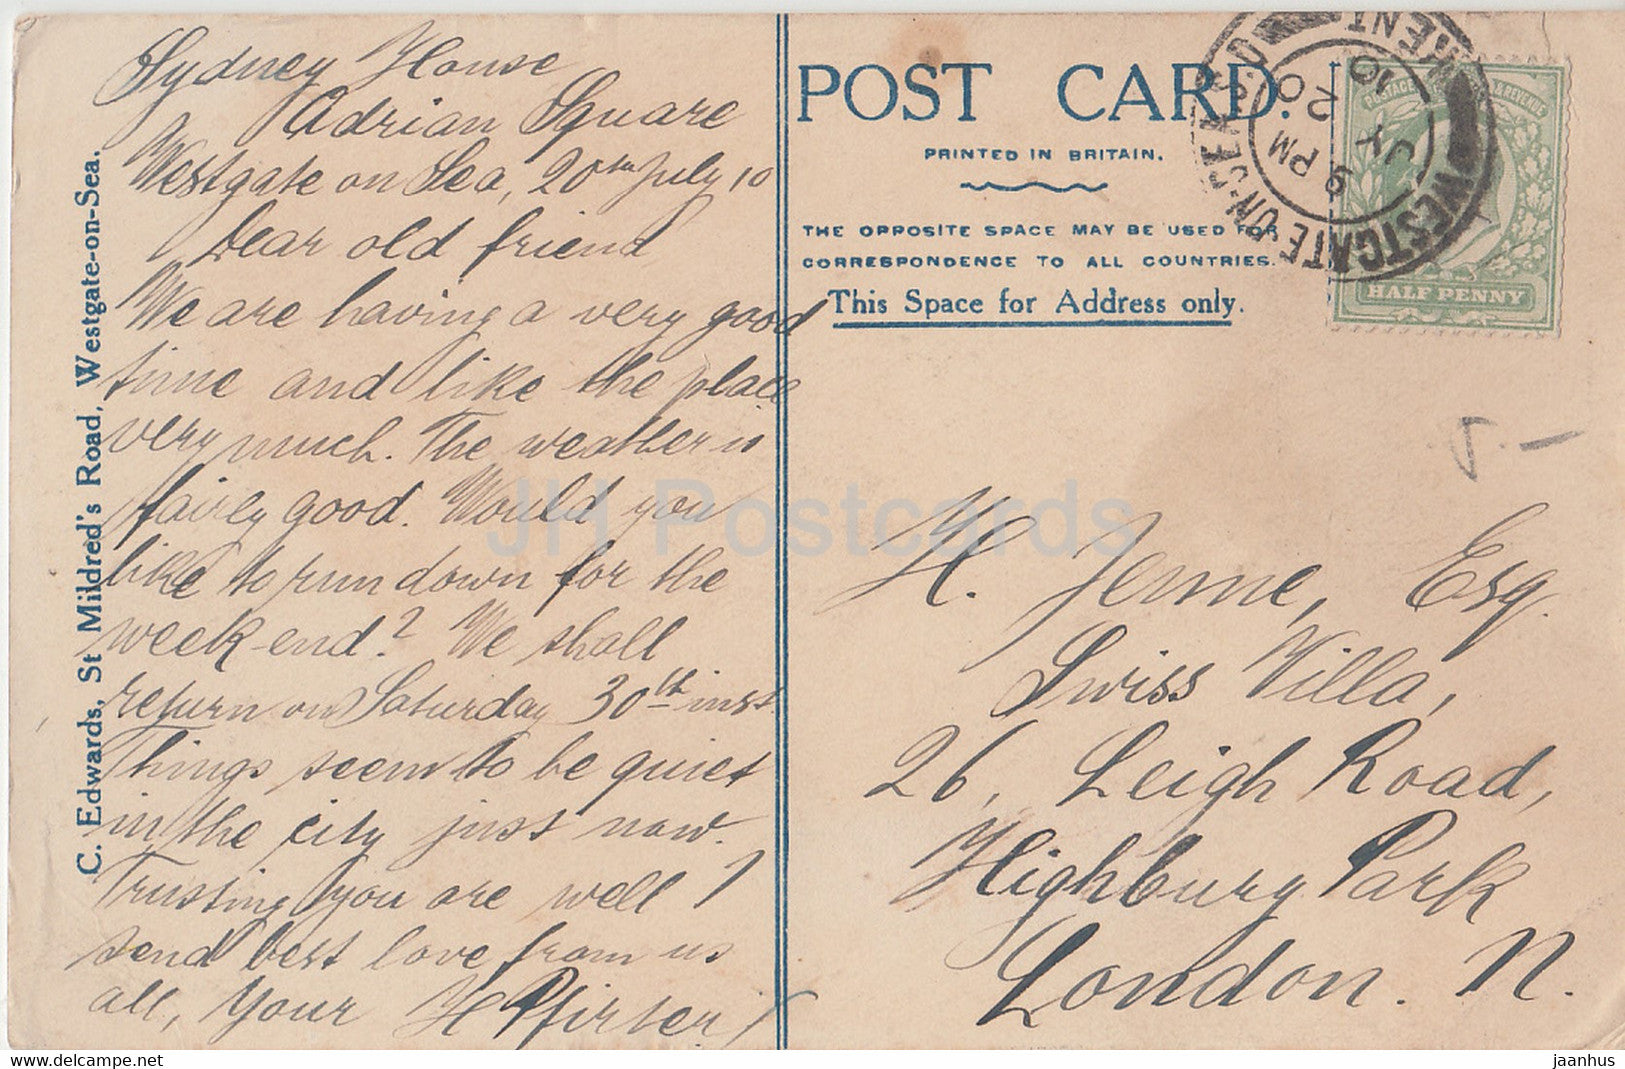 Sydney House
Adrian Square
Westgate on Sea, 20th July 10
Dear old friend
We are having a very good
time and like the place
very much. The weather is
fairly good. Would you
like to run down for the
week-end? We shall
return on Saturday 30th inst.
Things seem to be quiet
in the city just now.
Trusting you are well I
send best love from us
all, Your H Pfirter
C. Edwards, St Mildred's Road, Westgate-on-Sea.
POST CARD.
PRINTED IN BRITAIN.
THE OPPOSITE SPACE MAY BE USED FOR
CORRESPONDENCE TO ALL COUNTRIES.
This Space for Address only.
WESTGATE-ON-SEA S.O.
9 PM
JY 20
10
POSTAGE & REVENUE
HALF PENNY
5.-
H. Jenne, Esq.
Swiss Villa,
26, Leigh Road,
Highbury Park
London. N.
JH Postcards
https://jhpostcards.com
jaanhus